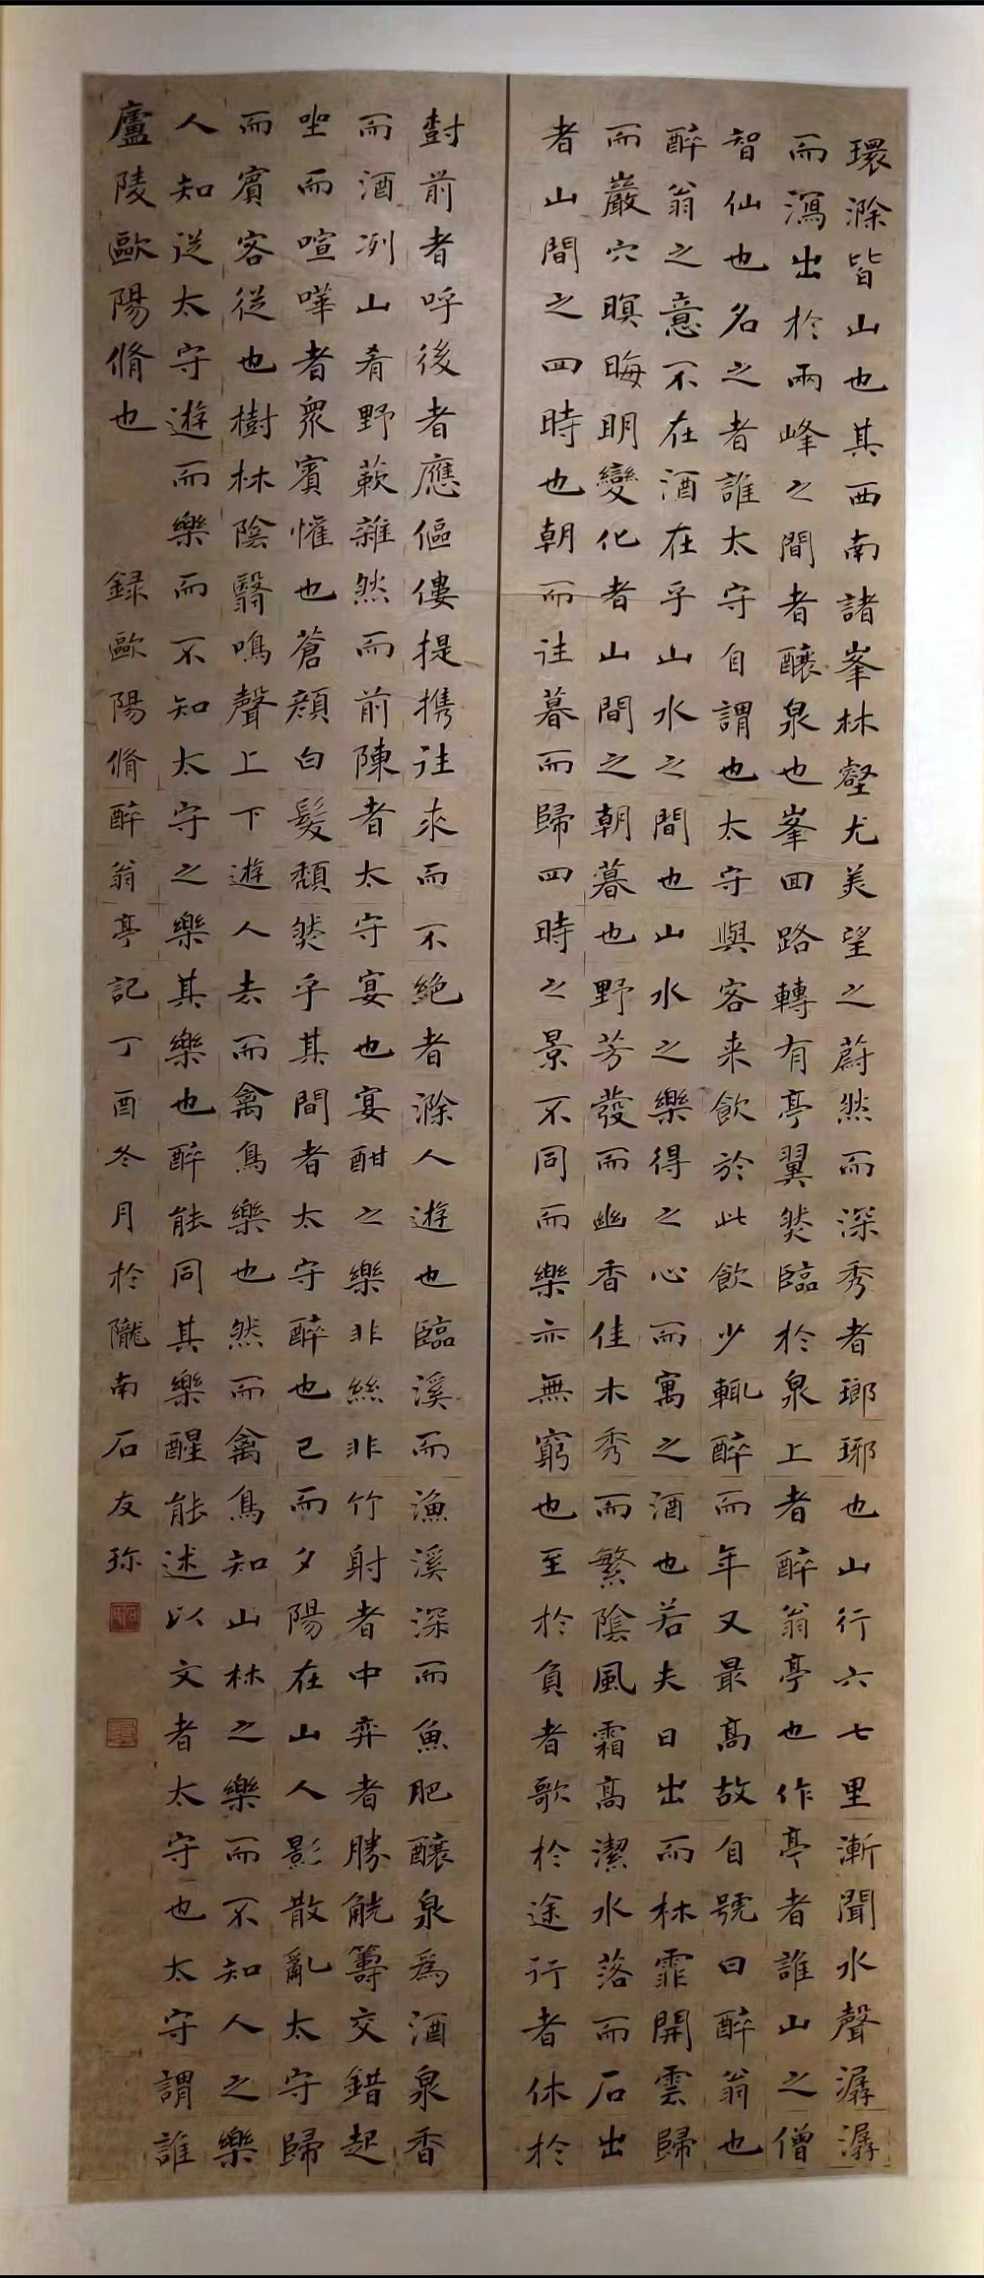 環滁皆山也其西南諸峯林壑尤美望之蔚然而深秀者瑯琊也山行六七里漸聞水聲潺潺
而瀉出於兩峰之間者釀泉也峯回路轉有亭翼然臨於泉上者醉翁亭也作亭者誰山之僧
智仙也名之者誰太守自謂也太守與客来飲於此飲少輒醉而年又最高故自號曰醉翁也
醉翁之意不在酒在乎山水之間也山水之樂得之心而寓之酒也若夫日出而林霏開雲歸
而巖穴暝晦明變化者山間之朝暮也野芳發而幽香佳木秀而繁陰風霜高潔水落而石出
者山間之四時也朝而往暮而歸四時之景不同而樂亦無窮也至於負者歌於途行者休於
尌前者呼後者應傴僂提携往来而不絶者滁人遊也臨溪而漁溪深而魚肥釀泉為酒泉香
而酒洌山肴野蔌雜然而前陳者太守宴也宴酣之樂非絲非竹射者中弈者勝觥籌交錯起
坐而喧嘩者衆賓懽也蒼顔白髮頹然乎其間者太守醉也已而夕陽在山人影散亂太守歸
而賓客從也樹林陰翳鳴聲上下遊人去而禽鳥樂也然而禽鳥知山林之樂而不知人之樂
人知從太守遊而樂而不知太守之樂其樂也醉能同其樂醒能述以文者太守也太守謂誰
廬陵歐陽脩也 録歐陽脩醉翁亭記丁酉冬月於隴南石友珎